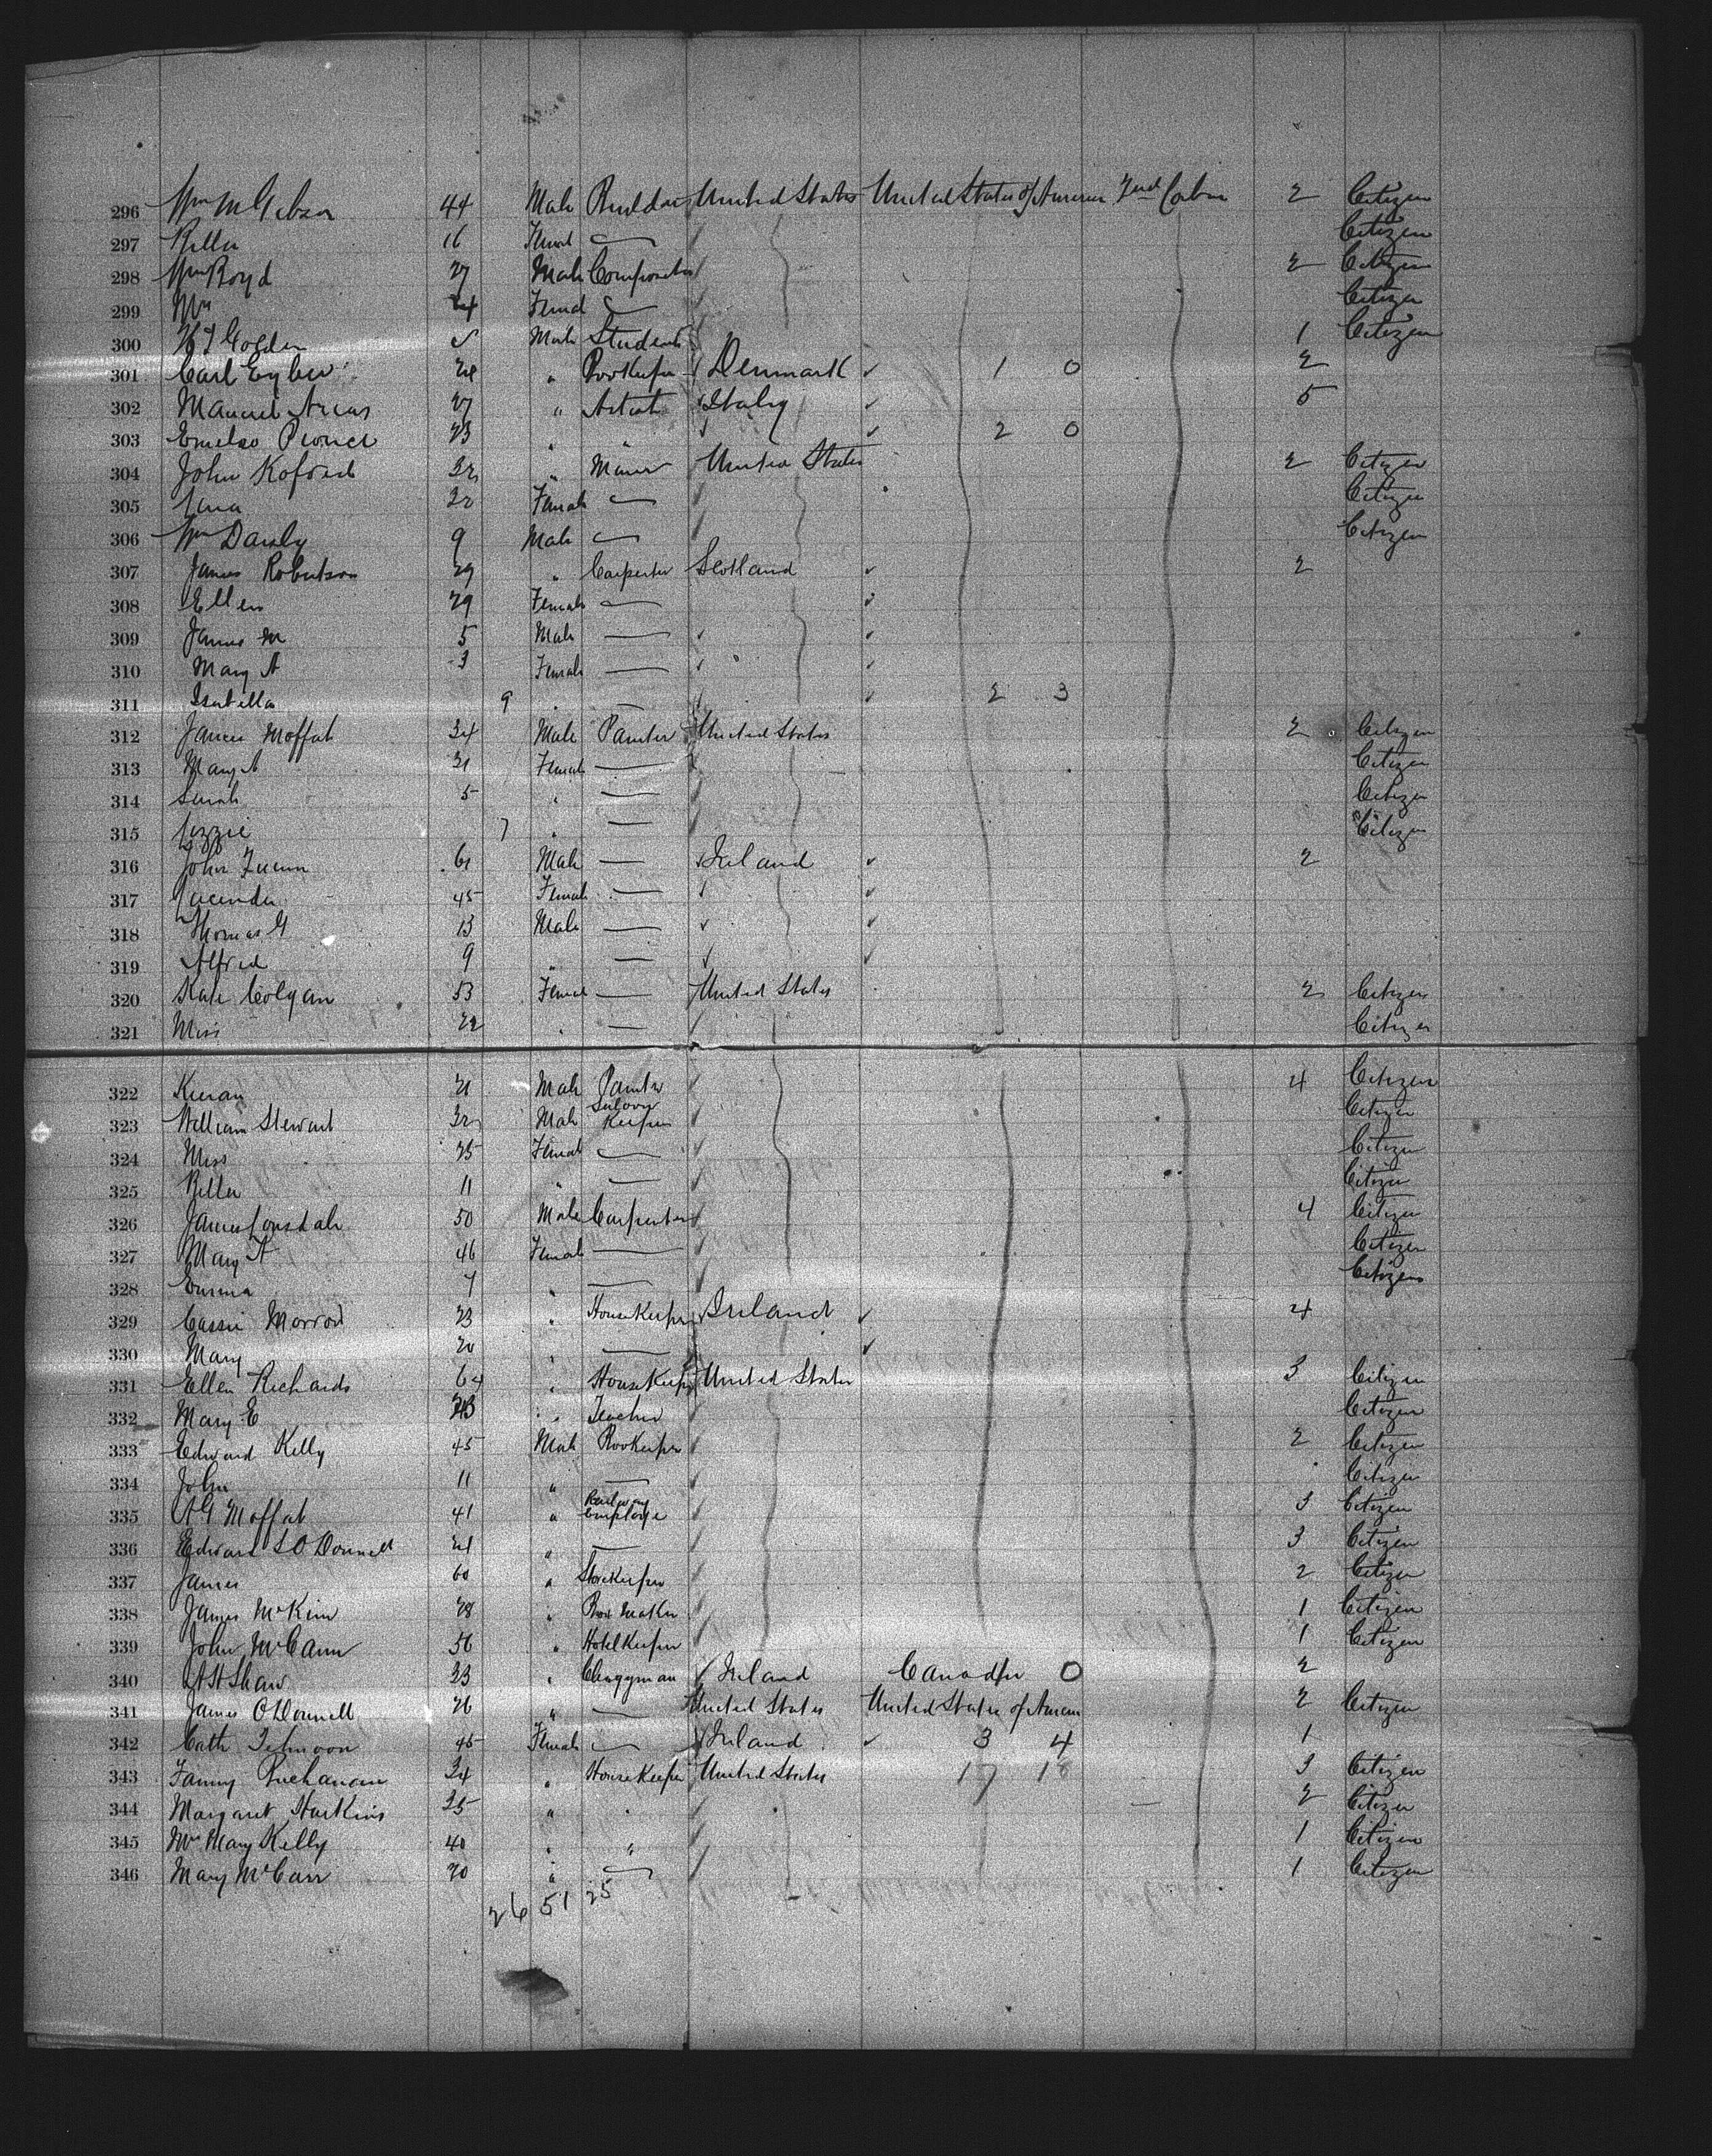 296 Wm McGibson 44 Male Builder United States United States of America 2nd Cabin 2 Citizen
297 Bella 16 Femal Citizen
298 Wm Boyd 27 Male Compositor 2 Citizen
299 Mrs 24 Femal Citizen
300 Male Student 1 Citizen
301 Carl 24 " Bookeeper Denmark 1 0 2
302 Manuel Arcas 27 " Artist Italy 5
303 23 " " 2 0
304 John Kofoed 32 " Miner United States 2 Citizen
305 Lena Female Citizen
306 Wm Darsly 9 Male Citizen
307 James Robertson 29 " Carpenter Scotland 2
308 Ellen 29 Female
309 James M 5 Male
310 Mary A 3 Female
311 Isabella 9 " 2 3
312 James Moffat 34 Male Painter United States 2 Citizen
313 Mary A 31 Female Citizen
314 Sarah 5 " Citizen
315 Lizzie 7 " Citizen
316 John 61 Male Ireland 2
317 Lucinda 45 Female
318 Thomas G 13 Male
319 Alfred 9 "
320 Kate Colgan 53 Female United States 2 Citizen
321 Miss 22 " Citizen
322 Kieran 21 Male Painter 4 Citizen
323 William Stewart 32 Male Saloon Keeper Citizen
324 Miss 25 Femal Citizen
325 Bella 11 " Citizen
326 James Lonsdale 50 Male Carpenter 4 Citizen
327 Mary A 46 Female Citizen
328 Emma 7 " Citizen
329 Cassie Morrow 23 " HouseKeeper Ireland 4
330 Mary 20 "
331 Ellen Richards 64 " HouseKeeper United States 3 Citizen
332 Mary E " Teacher Citizen
333 Edward Kelly 45 Male Bookeeper 2 Citizen
334 John 11 " Citizen
335 A G Moffat 41 " Railway Employe 3 Citizen
336 Edward S O'Donnell 21 " 3 Citizen
337 James 60 " StoreKeeper 2 Citizen
338 James McKim 28 " Box Maker 1 Citizen
339 John McCann 56 " Hotel Keeper 1 Citizen
340 Shaw 33 " Clergyman Ireland Canada 0 2
341 James O'Donnell 26 " United States United States of Americ 2 Citizen
342 Cath 45 Female Ireland 3 4 1
343 Fanny Buchanan 34 " HouseKeeper United States 17 18 3 Citizen
344 Margaret Harkins 35 " " 2 Citizen
345 Mrs Mary Kelly 40 " " 1 Citizen
346 Mary McCarr 20 " 1 Citizen
26 51 25